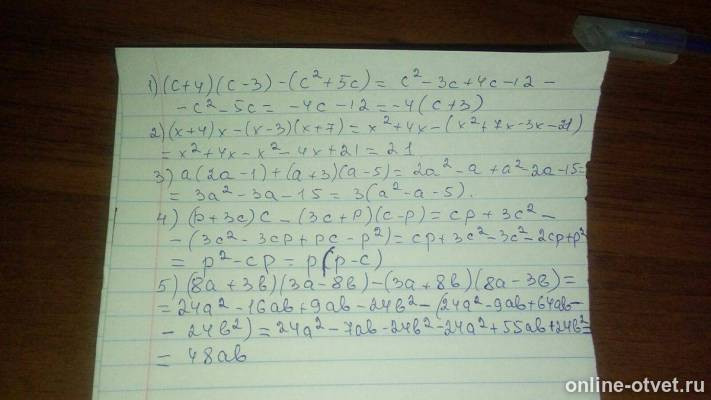 1) (c+4)(c-3)-(c²+5c) = c²-3c+4c-12-
-c²-5c = -4c-12 = -4(c+3)
2) (x+4)x-(x-3)(x+7) = x²+4x-(x²+7x-3x-21)
= x²+4x-x²-4x+21 = 21
3) a(2a-1)+(a+3)(a-5) = 2a²-a+a²-2a-15=
= 3a²-3a-15 = 3(a²-a-5).
4) (p+3c)c-(3c+p)(c-p) = cp+3c²-
-(3c²-3cp+pc-p²) = cp+3c²-3c²-2cp+p²
= p²-cp = p(p-c)
5) (8a+3b)(3a-8b)-(3a+8b)(8a-3b)=
= 24a²-16ab+9ab-24b²-(24a²-9ab+64ab-
-24b²) = 24a²-7ab-24b²-24a²+55ab+24b²=
= 48ab
online-otvet.ru